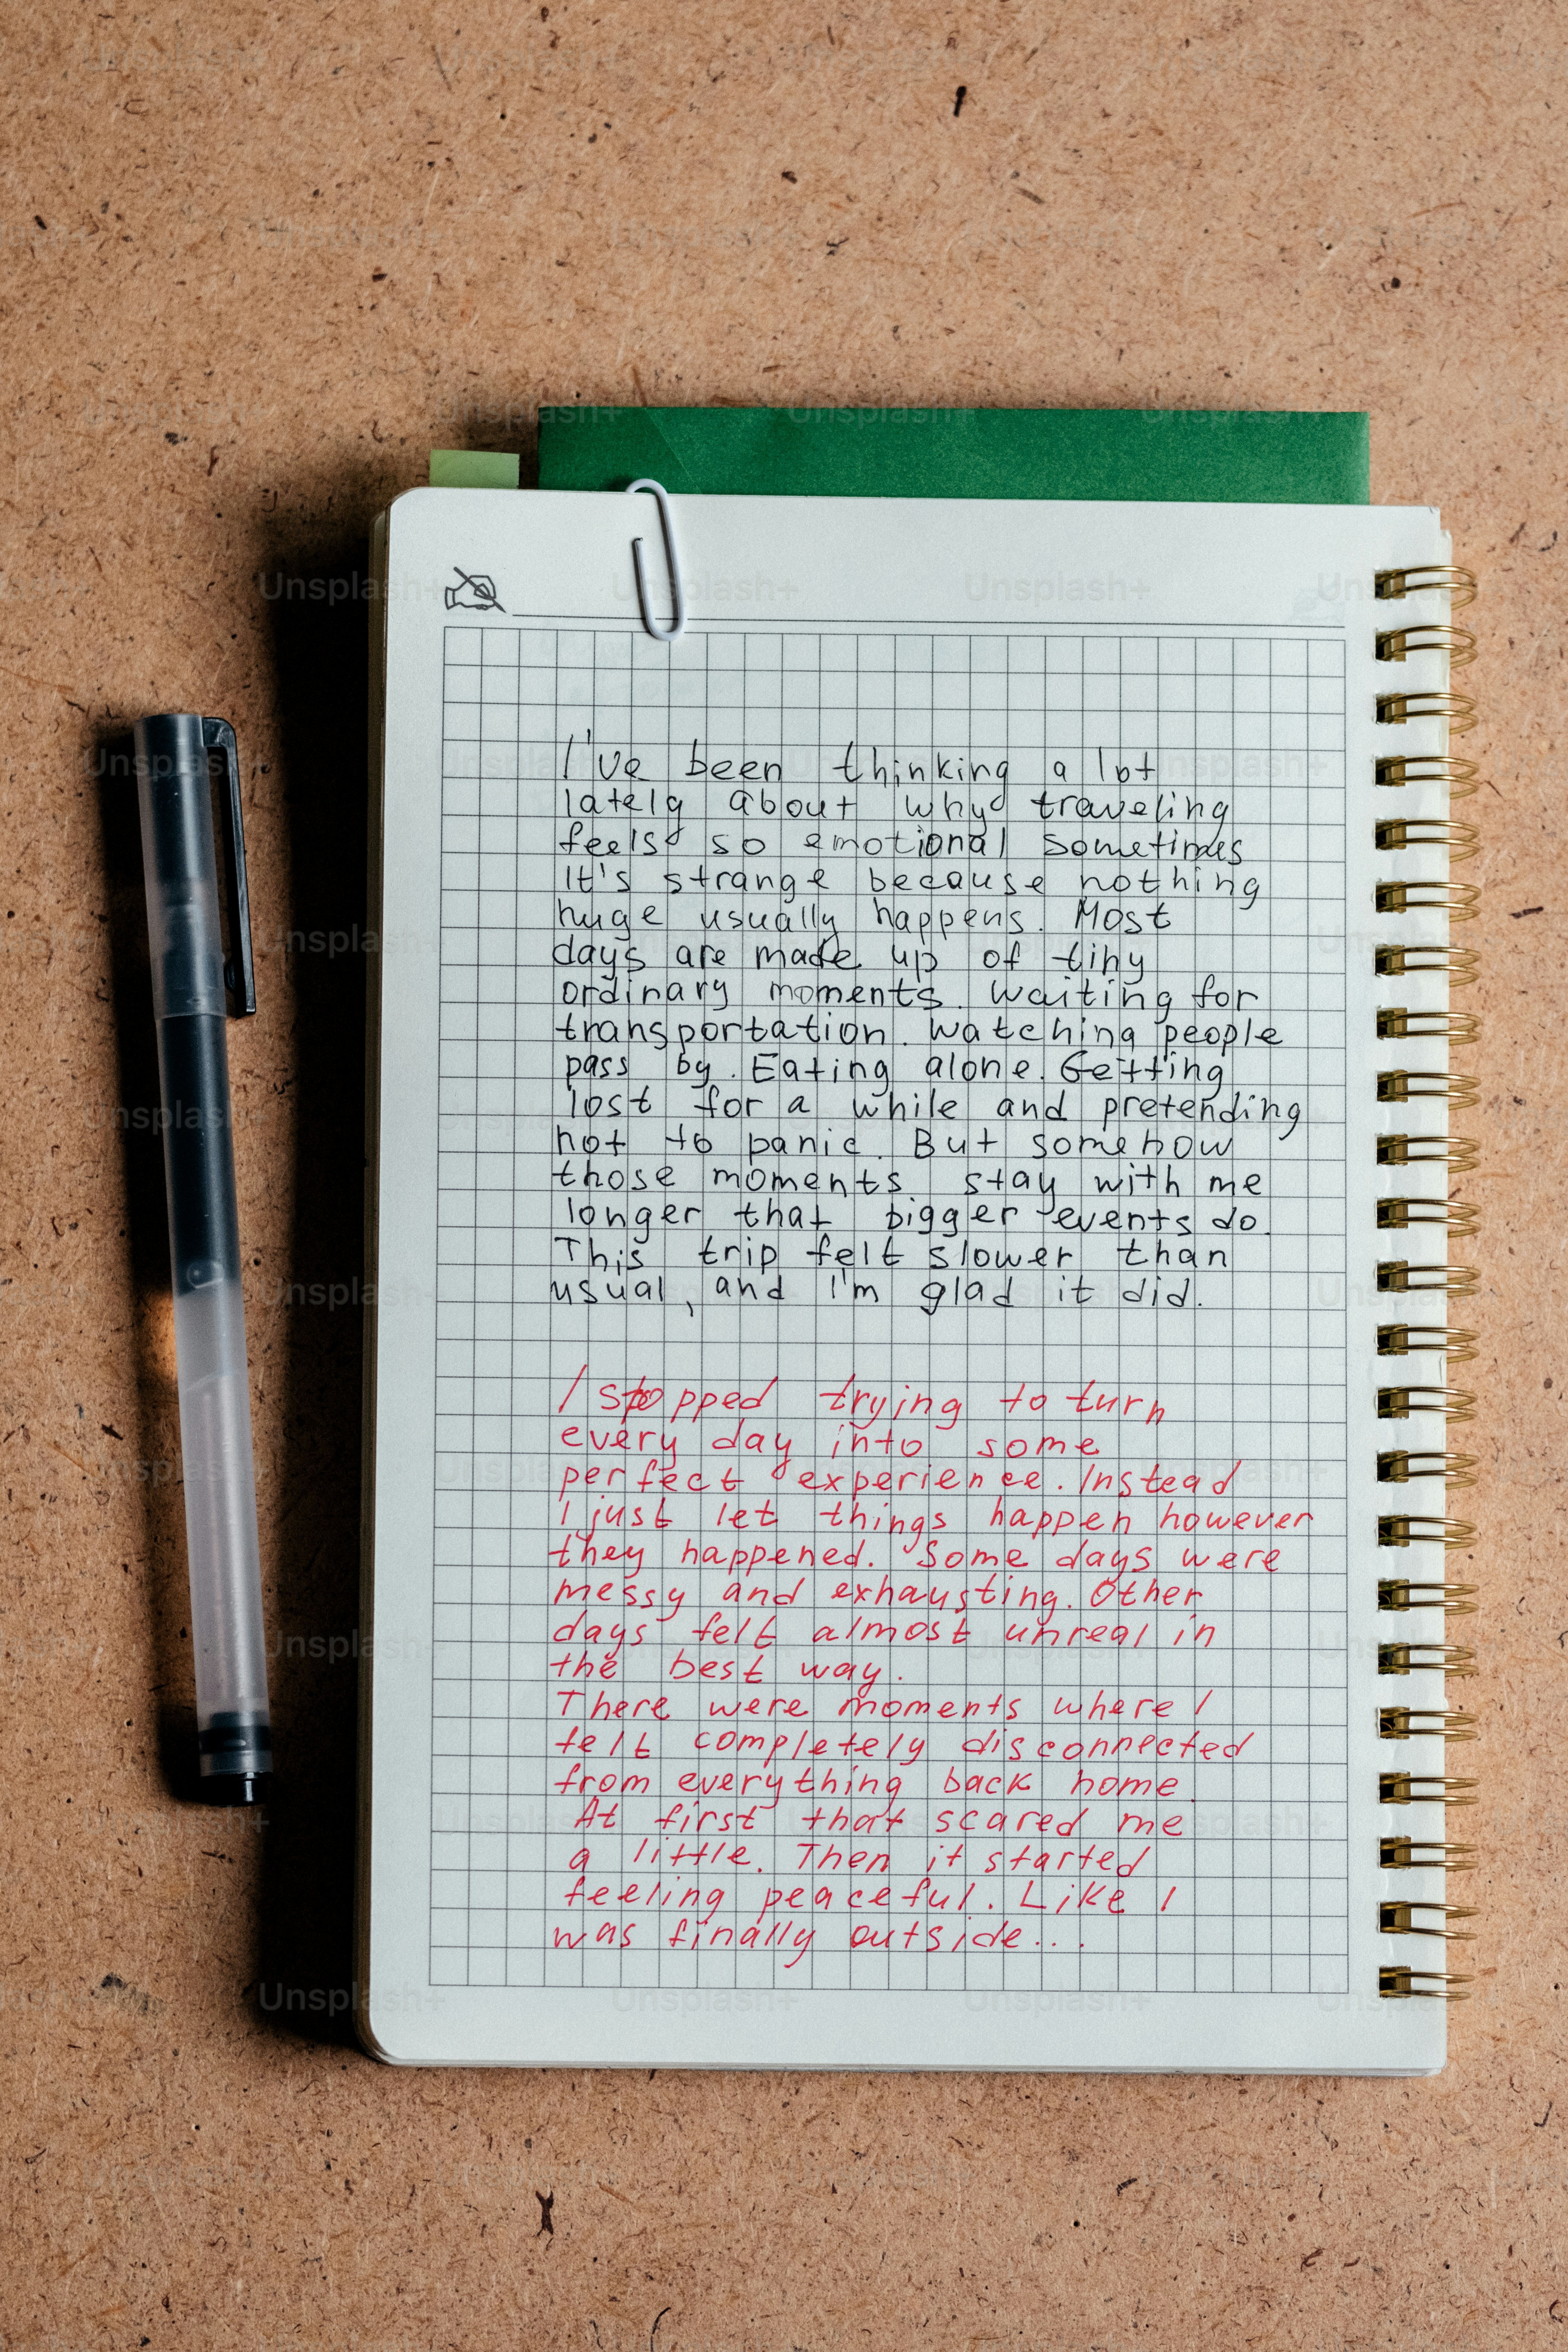 I've been thinking a lot
lately about why traveling
feels so emotional sometimes
It's strange because nothing
huge usually happens. Most
days are made up of tiny
ordinary moments. Waiting for
transportation. Watching people
pass by. Eating alone. Getting
lost for a while and pretending
not to panic. But somehow
those moments stay with me
longer that bigger events do.
This trip felt slower than
usual, and I'm glad it did.
I stopped trying to turn
every day into some
perfect experience. Instead
I just let things happen however
they happened. Some days were
messy and exhausting. Other
days felt almost unreal in
the best way.
There were moments where I
felt completely disconnected
from everything back home.
At first that scared me
a little. Then it started
feeling peaceful. Like I
was finally outside...
Unsplash+